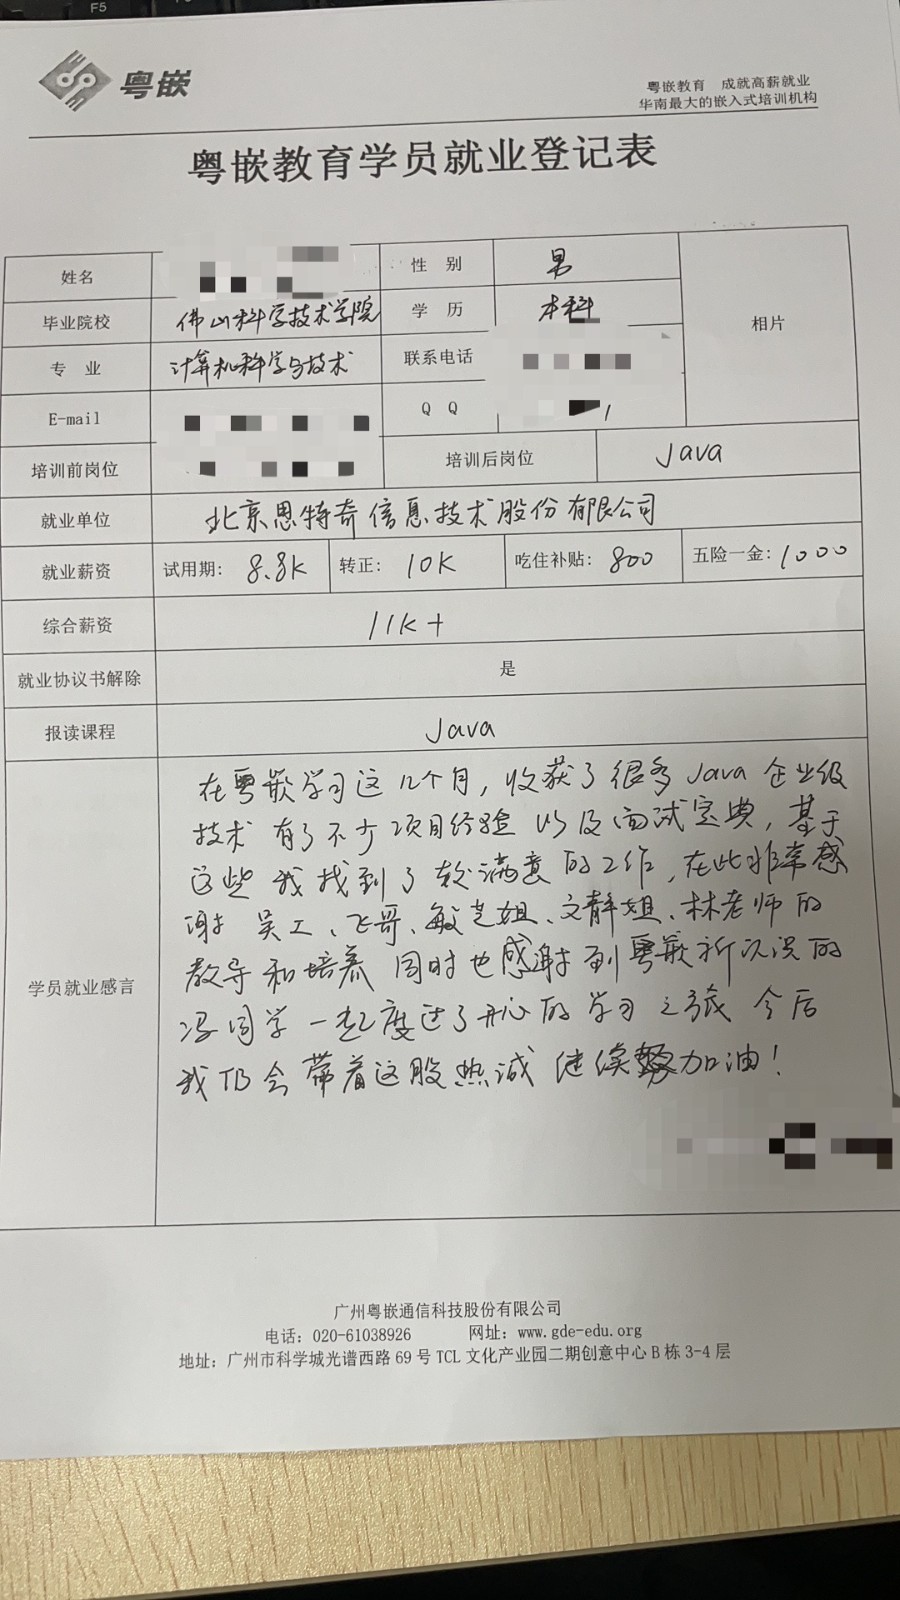 F5
粤嵌
粤嵌教育 成就高薪就业
华南最大的嵌入式培训机构
粤嵌教育学员就业登记表
姓名 性 别 男 相片
毕业院校 佛山科学技术学院 学 历 本科
专 业 计算机科学与技术 联系电话
E-mail Q Q
培训前岗位 培训后岗位 Java
就业单位 北京思特奇信息技术股份有限公司
就业薪资 试用期: 8.8K 转正: 10K 吃住补贴: 800 五险一金: 1000
综合薪资 11K+
就业协议书解除 是
报读课程 Java
学员就业感言
在粤嵌学习这几个月,收获了很多Java企业级
技术 有了不少项目经验 以及面试宝典,基于
这些 我找到了较满意的工作,在此非常感
谢 吴工、飞哥、敏芝姐、文静姐、林老师的
教导和培养 同时也感谢到粤嵌所认识的
冯同学一起度过了开心的学习之旅 今后
我仍会带着这股热诚 继续加油!
广州粤嵌通信科技股份有限公司
电话: 020-61038926 网址: www.gde-edu.org
地址: 广州市科学城光谱西路 69 号 TCL 文化产业园二期创意中心 B 栋 3-4 层